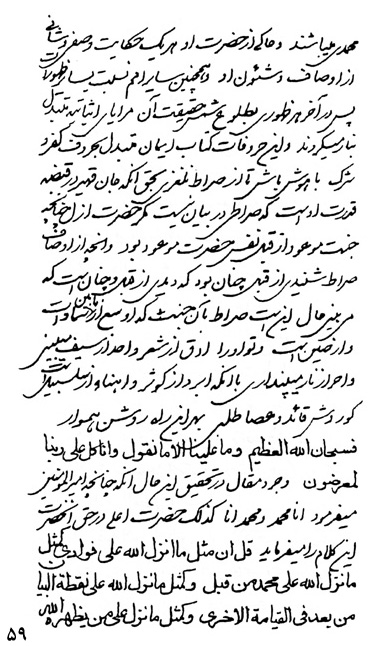 محمدی میباشند و حاکی از حضرت او هر یک حکایت وصفی و شأنی
از اوصاف و شئون او و همچنین سایر امم نسبت بسایر ظهورات
پس در آخر هر ظهوری بطلوع شمس حقیقت آن مرایای اثباتیه مبتدل
بنار میگردند و این حروفات کتاب ایمان متبدل بحروف کفر و
شرک با هوش باش تا از صراط نلغزی بحق آنکه جان قهیر در قبضه
قدرت اوست که صراطی در بیان نیست مگر حضرت ازل چنانچه
جنت موعود از قبل نفس حضرت موعود بود و آنچه از اوصاف
صراط شنیدی از قبل چنان بود که دیدی از قبل و چنان است که
می بینی حال این است صراط بآن جنت که اوسع از ما بین سماوات
و ارضین است و تو او را ادق از شعر و احد از سیف می بینی
و احر از نار میپنداری با آنکه ابرد از کوثر و اهناء از سلسبیل است
کور دوش قائد و عصا طلبی بهر این راه روشن هموار
فسبحان الله العظیم و ما علینا الا ما نقول و انا کل علی ربنا
لمعرضون وجود مقال در تحقیق این حال آنکه چنانچه امیرالمؤمنین
میفرمود انا محمد و محمد انا کذلک حضرت اعلی در حق آنحضرت
این کلام را میفرماید قل ان مثل ما انزل الله علی فوادی کمثل
ما نزل الله علی محمد من قبل و کمثل ما نزل الله علی نقطة البیان
من بعد فی القیامة الاخری و کمثل ما نزل علی من یظهره الله
۵۹